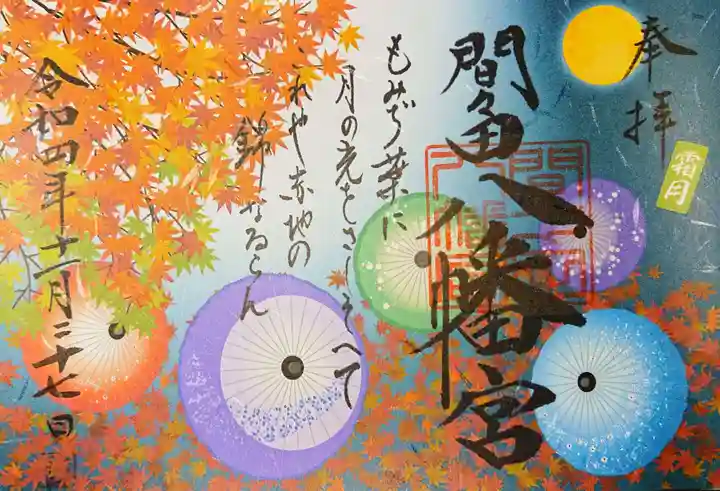 奉拝
霜月
間々田八幡宮
もみぢ葉に
月の光をさしそへて
これや赤地の
錦なるらん
令和四年十一月二十七日